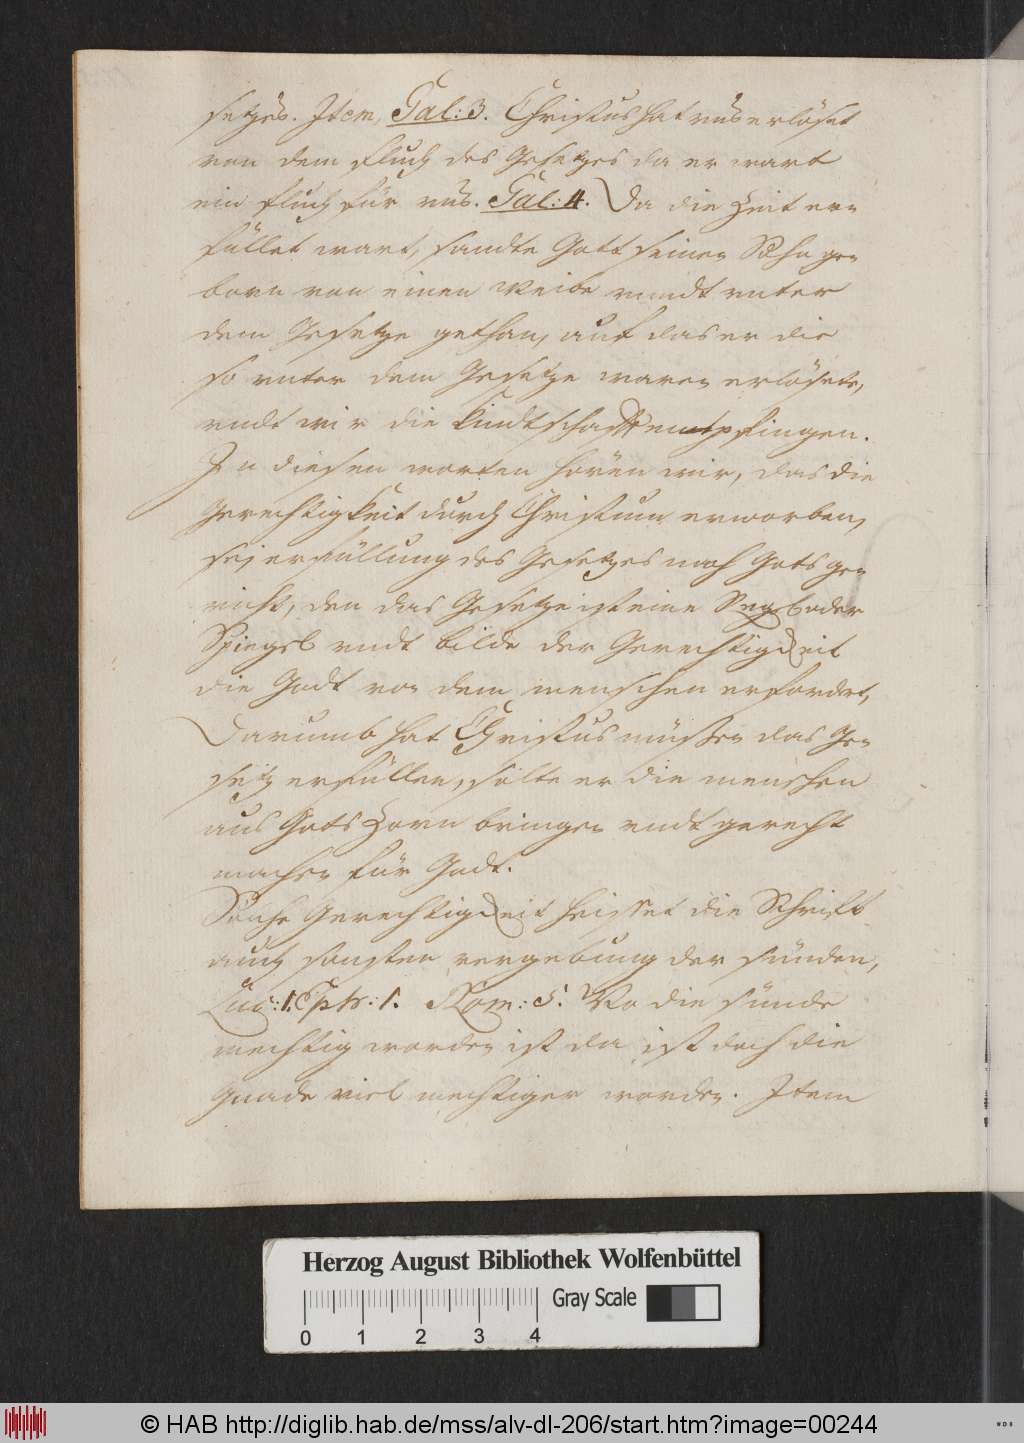 setzes. Item, Gal: 3. Christus hat uns erlöset
von dem fluch des Gesetzes da er wart
ein fluch für uns. Gal: 4. Da die Zeit er=
füllet wart, sandte Gott seinen Sohn ge=
born von einen Weibe undt unter
dem Gesetze gethan, auf das er die
so unter dem Gesetze waren erlösete,
undt wir die Kindtschafft empfingen.
In diesen worten hören wir, das die
Gerechtigkeit durch Christum erworben,
sej erfüllung des Gesetzes nach Gots ge=
richt, den das Gesetze ist eine Regel oder
Spiegel undt bilde der Gerechtigkeit
die Godt von dem menschen erfordert,
Darumb hat Christus müssen das Ge=
setz erfüllen, solte er die menschen
aus Gots Zorn bringen undt gerecht
machen für Godt.
Solche Gerechtigkeit heisset die Schrift
auch sonsten vergebung der sünden,
Luc: 1. Eph: 1. Rom: 5. Wo die sünde
mechtig worden ist da ist doch die
Gnade viel mechtiger worden. Item
Herzog August Bibliothek Wolfenbüttel
Gray Scale
0 1 2 3 4
© HAB http://diglib.hab.de/mss/alv-dl-206/start.htm?image=00244